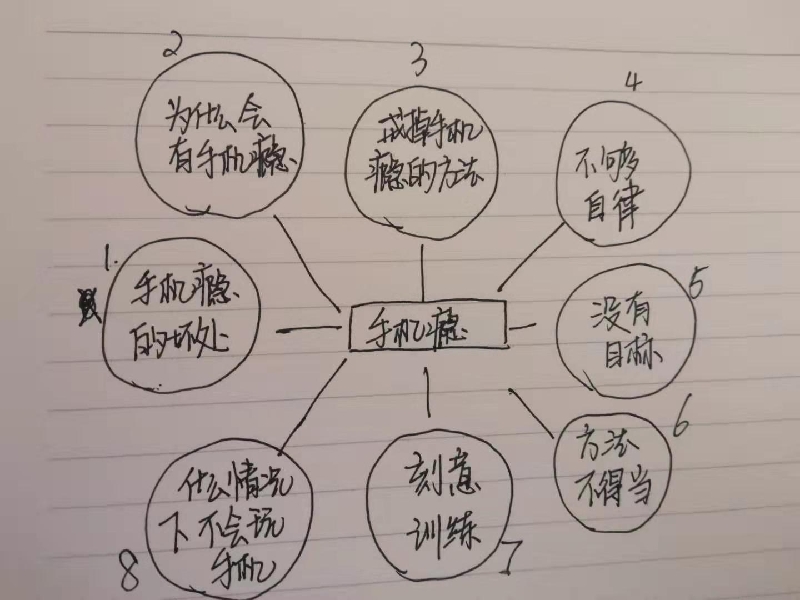 2
为什么会
有手机瘾
3
戒掉手机
瘾的方法
4
不够
自律
1.
手机瘾
的坏处
手机瘾
5
没有
目标
6
方法
不得当
7
刻意
训练
8
什么情况
下不会玩
手机